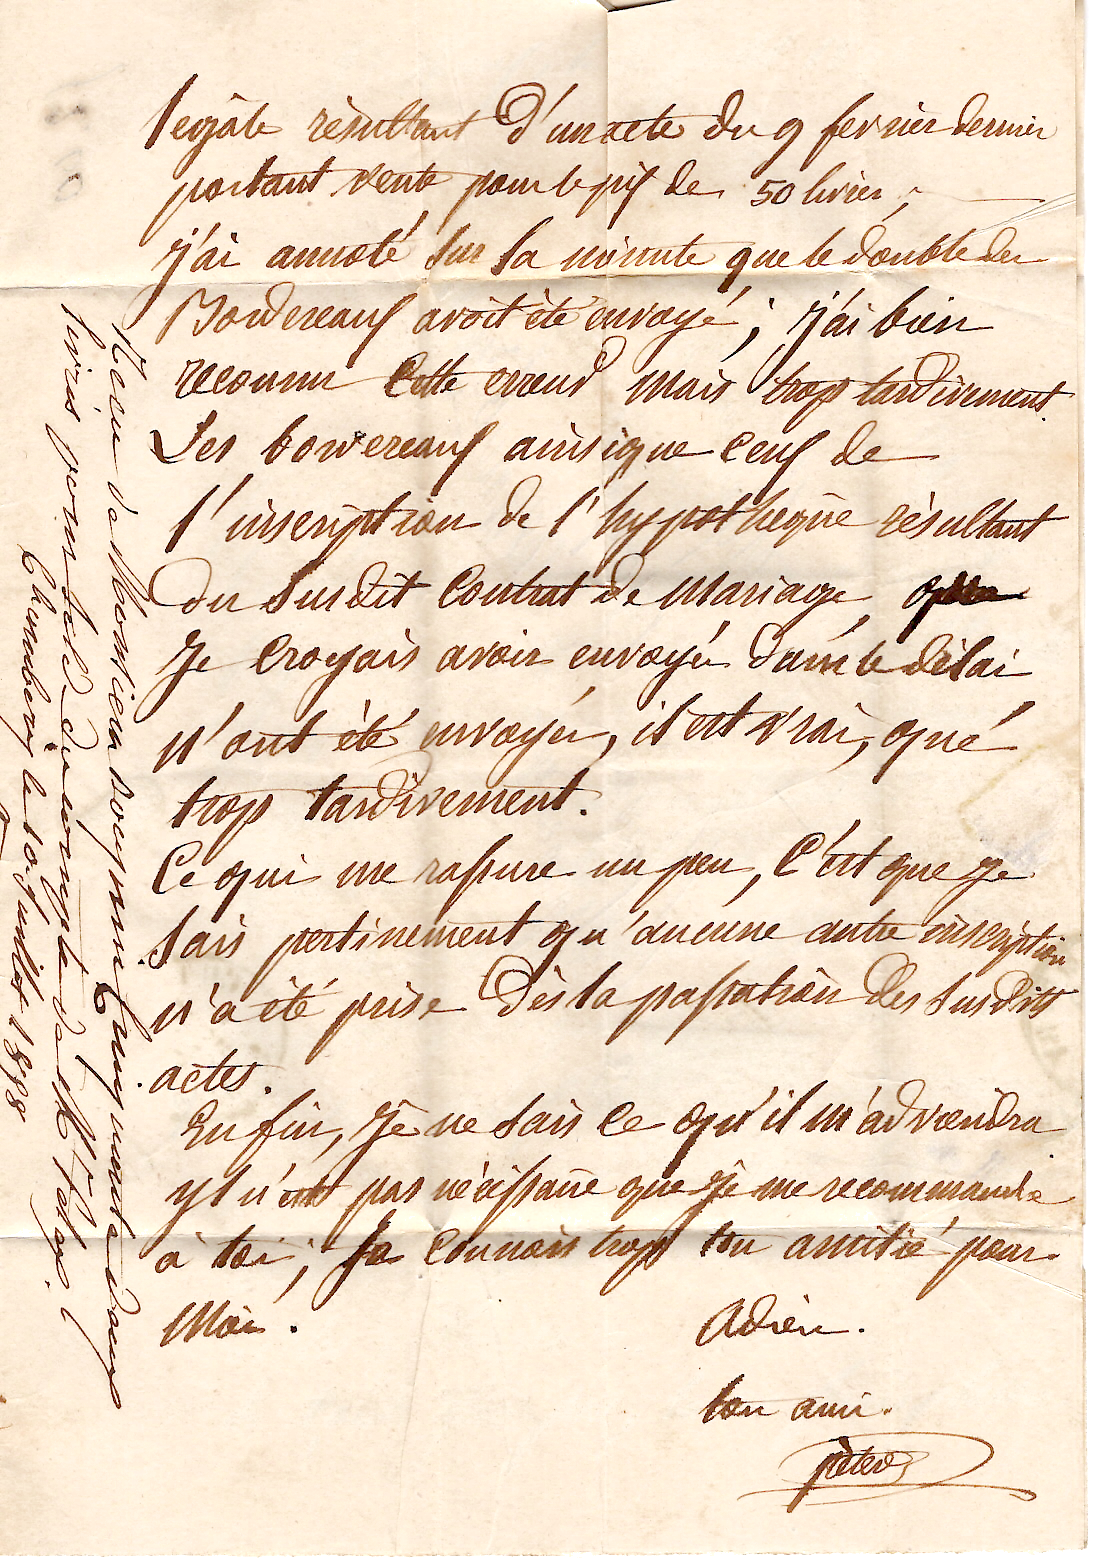 legale résultant d'unacte du 9 fevrier dernier
portant vente pour le prix de 50 livres,
j'ai annoté sur la minute que le double des
Bordereaux avoit été envoyé; j'ai bien
reconnu cette erreur mais trop tardivement.
Les bordereaux ainsi que ceux de
l'inscription de l'hypothèque résultant
du susdit Contrat de Mariage
je croyais avoir envoyé dans le délai
n'ont été envoyés, il est vrai, que
trop tardivement.
Ce qui me rassure un peu, C'est que je
sais pertinement qu'aucune autre inscription
n'a été prise dès la passation des susdits
actes.
Enfin, je ne sais ce qu'il m'adviendra
yl n'est pas nécessaire que je me recommande
à toi; je connois trop ton amitié pour
Moi.
Adieu.
ton ami.
Reçu de Monsieur quarante deux
livres pour solde du compte de Mr
Chambery le 10 juillet 1858